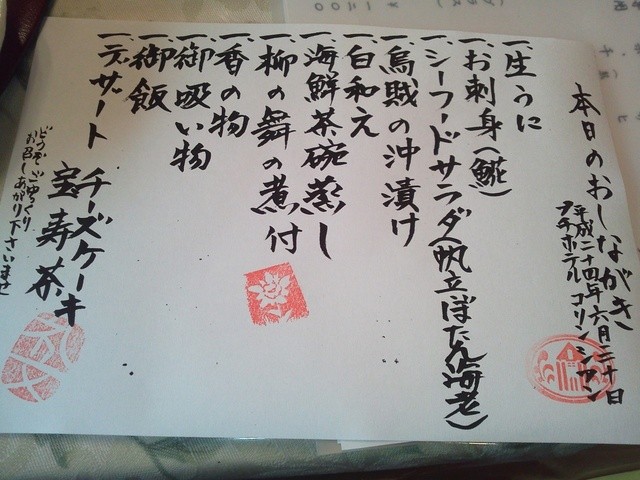 本日のおしながき
平成二十四年六月二十日
プチホテル コリンシアン
一、生うに
一、お刺身(鯎)
一、シーフードサラダ(帆立ぼたん海老)
一、烏賊の沖漬け
一、白和え
一、海鮮茶碗蒸し
一、柳の舞の煮付
一、香の物
一、御吸い物
一、御飯
一、デザート チーズケーキ
宝寿茶
どうぞごゆっくり
お召しあがり下さいませ